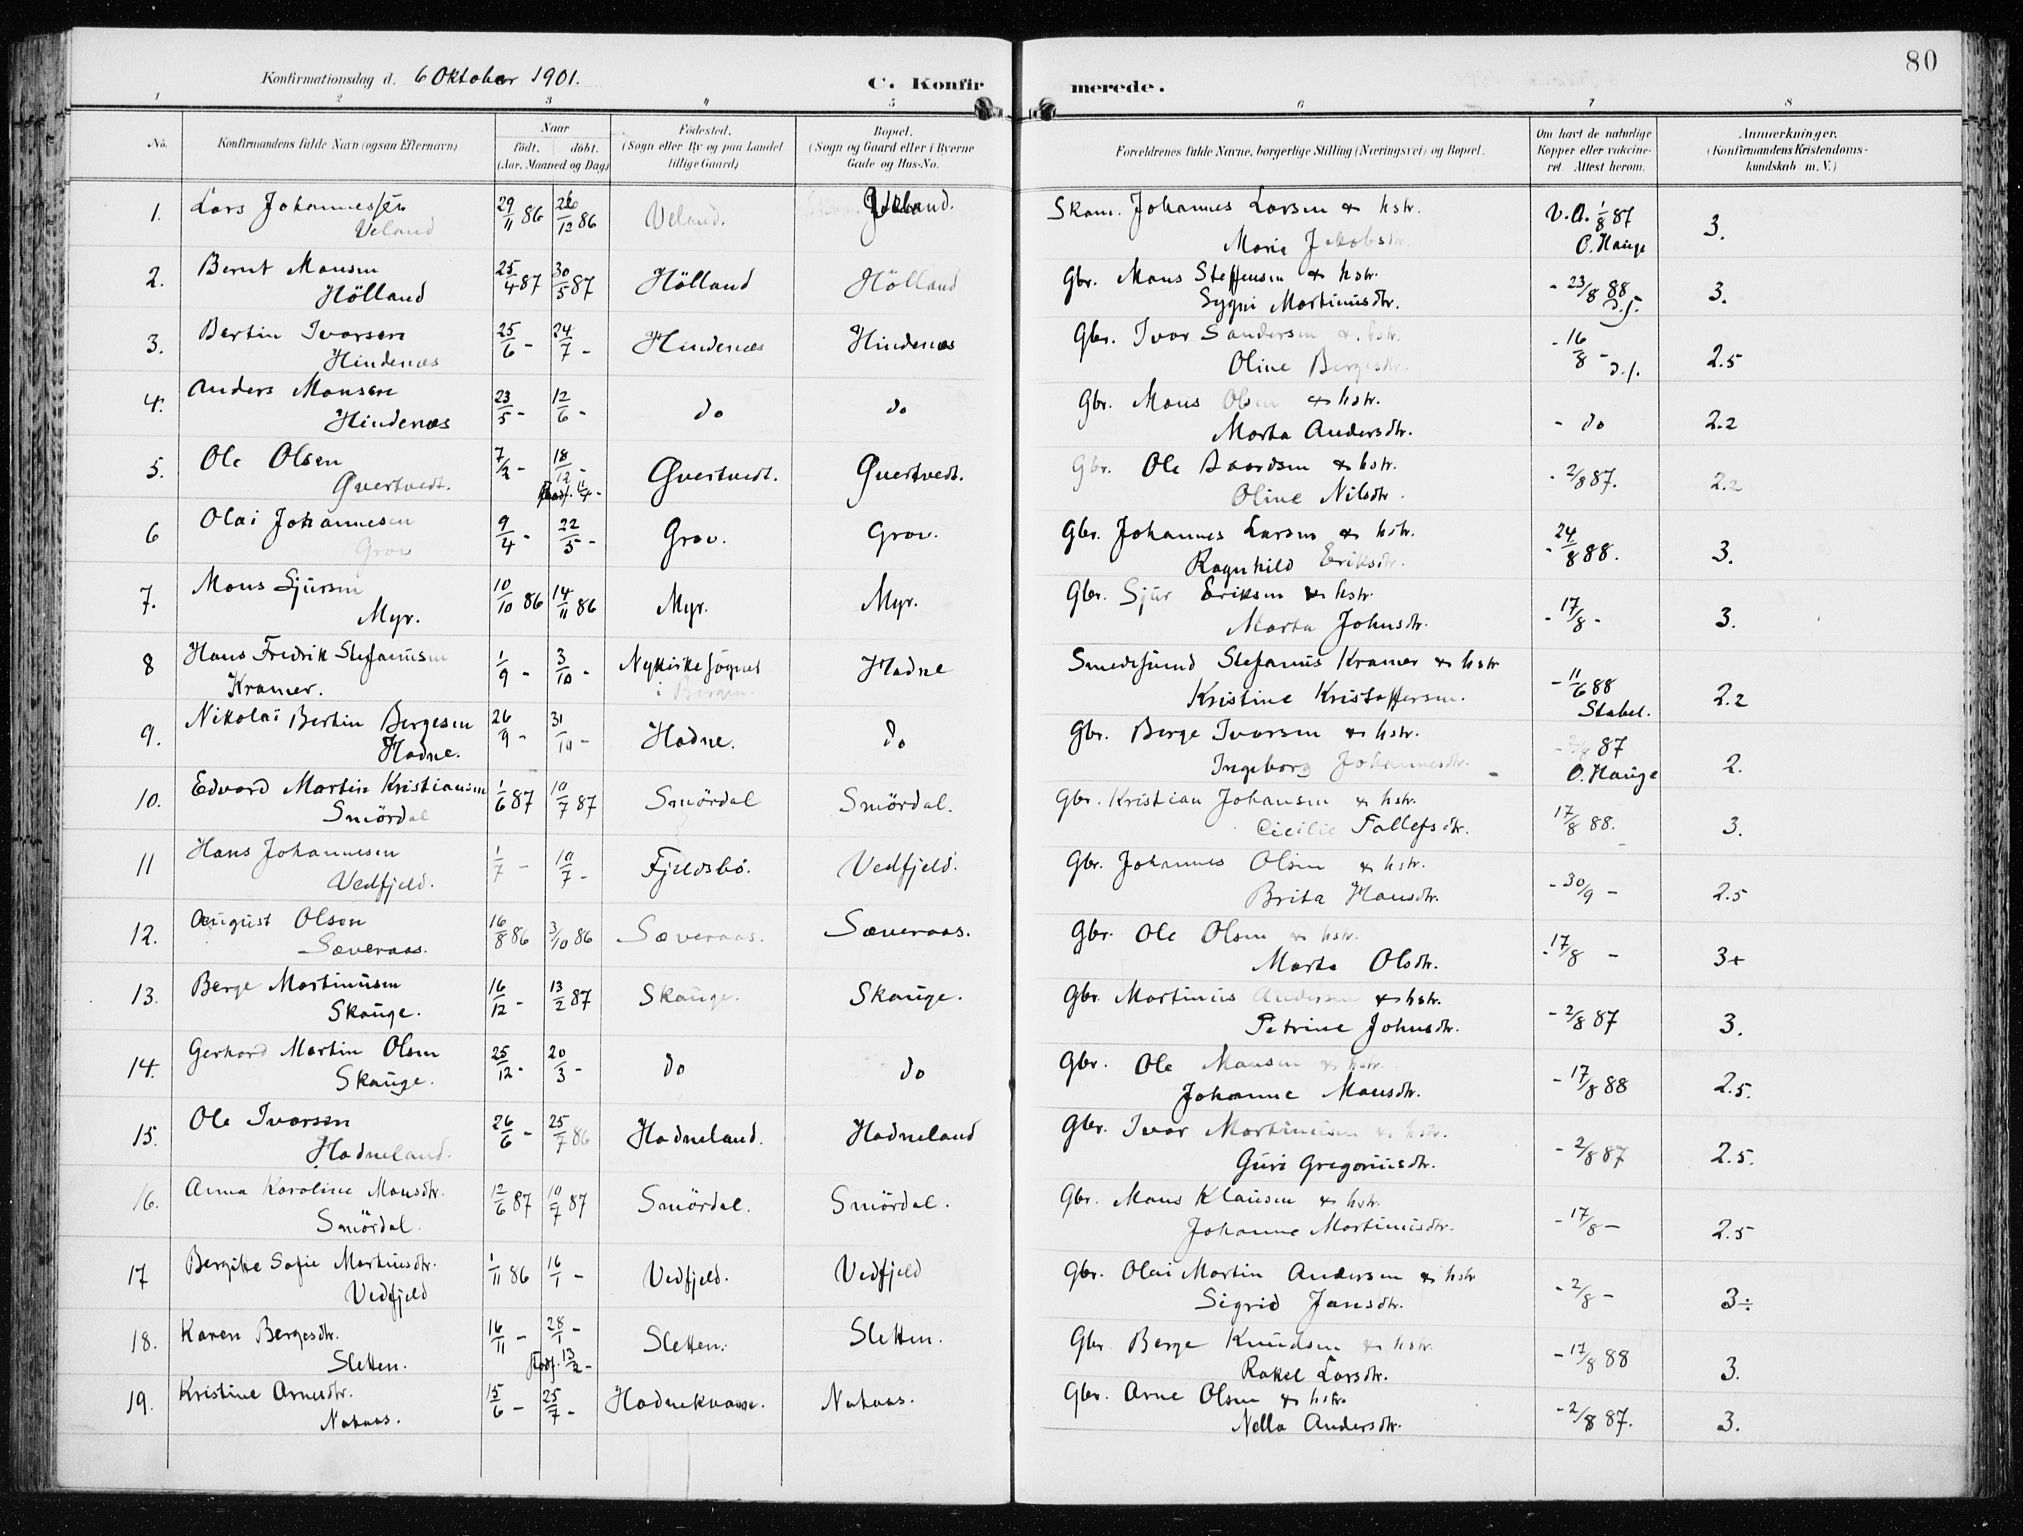 80
Konfirmationsdag d. 6 Oktober 1901. C. Konfir merede.
1 2 3 4 5 6 7 8
No. Konfirmandens fulde Navn (ogsaa Efternavn) Naar födt. döbt. (Aar, Maaned og Dag) Födested. (Sogn eller By og paa Landet tillige Gaard) Bopæl. (Sogn og Gaard eller i Byerne Gade og Hus-No. Forældrenes fulde Navne, borgerlige Stilling (Næringsvei) og Bopæl. Om havt de naturlige Kopper eller vaccineret. Attest herom. Anmærkninger. (Konfirmandens Kristendomskundskab m. V.)
1. Lars Johannessen 29/11 86 26/12 86 Veland. Veland. Johannes Larsen & hstr. V.A. 1/8 87 3.
Veland Marie Jakobsdtr. O. Hauge
2. Bernt Monsen 25/4 87 30/5 87 Hölland Hölland Gbr. Mons Steffensen & hstr. - 23/8 88 3.
Hölland Sygni Martinusdtr. d.s.
3. Bertin Ivarsen 25/6 - 24/7 - Hindenæs Hindenæs Gbr. Ivar Sandersen & hstr. - 16/8 - 2.5
Hindenæs Oline Bergesdtr. d.s.
4. Anders Monsen 23/5 - 12/6 - do do Gbr. Mons Olsen & hstr. - do 2.2
Hindenæs Marta Andersdtr.
5. Ole Olsen 7/2 - 18/12 - Qvertvedt. Qvertvedt. Gbr. Ole Baardsen & hstr. - 2/8 87. 2.2
Qvertvedt. 11/4 - Oline Nilsdtr.
6 Olai Johannesen 9/4 - 22/5 - Grov. Grov. Gbr. Johannes Larsen & hstr. - 24/8 88. 3.
Grov Ragnhild Eriksdtr.
7. Mons Sjursen 10/10 86 14/11 86 Myr. Myr. Gbr. Sjur Eriksen & hstr. - 17/8 - 3.
Myr. Marta Johnsdtr.
8 Hans Fredrik Stefanusen 1/9 - 3/10 - Nykirkesognet Hodne Smedsvend Stefanus Kramer & hstr - 11/6 88 2.2
Kramer. i Bergen Kristine Kristoffersen. Stabel.
9. Nikolai Bertin Bergesen 26/9 - 31/10 - Hodne. do Gbr. Berge Ivarsen & hstr. - 2/8 87 2.
Hodne. Ingeborg Johannesdtr. O. Hauge
10. Edvard Martin Kristiansen 1/6 87 10/7 87 Smördal Smördal. Gbr. Kristian Johansen & hstr. 17/8 88. 3.
Smördal Cicilie Tollefsdtr.
11 Hans Johannesen 1/7 - 10/7 - Fjeldsbö. Vedfjeld. Gbr. Johannes Olsen & hstr. - 30/9 - 2.5
Vedfjeld. Brita Hansdtr.
12. August Olsen 16/8 86 3/10 86 Sæveraas. Sæveraas. Gbr. Ole Olsen & hstr. - 17/8 - 3+
Sæveraas. Marta Olsdtr.
13. Berge Martinusen 16/12 - 13/2 87 Skauge. Skauge. Gbr. Martinus Andersen & hstr. - 2/8 87 3.
Skauge. Petrine Johnsdtr.
14. Gerhard Martin Olsen 25/12 - 20/3 - do do Gbr. Ole Monsen & hstr. - 17/8 88 2.5.
Skauge. Johanne Monsdtr.
15. Ole Ivarsen 26/6 - 25/7 86 Hodneland. Hodneland Gbr. Ivar Martinusen & hstr. - 2/8 87 2.5.
Hodneland. Guri Gregoriusdtr.
16. Anna Karoline Monsdtr. 12/6 87 10/7 87 Smördal. Smördal. Gbr. Mons Klausen & hstr. - 17/8 - 2.5
Smördal. Johanne Martinusdtr.
17 Bergitte Sofie Martinsdtr. 1/11 86 16/1 - Vedfjeld. Vedfjeld Gbr. Olai Martin Andersen & hstr - 2/8 - 3÷
Vedfjeld Sigrid Jansdtr.
18. Karen Bergesdtr. 16/11 - 28/1 - Sletten. Sletten. Gbr. Berge Knudsen & hstr. - 17/8 88 3.
Sletten. 13/2 - Rakel Larsdtr.
19. Kristine Arnesdtr. 15/6 - 25/7 - Hodnekvame. Nataas. Gbr. Arne Olsen & hstr. - 2/8 87. 3.
Nataas. Nella Andersdtr.